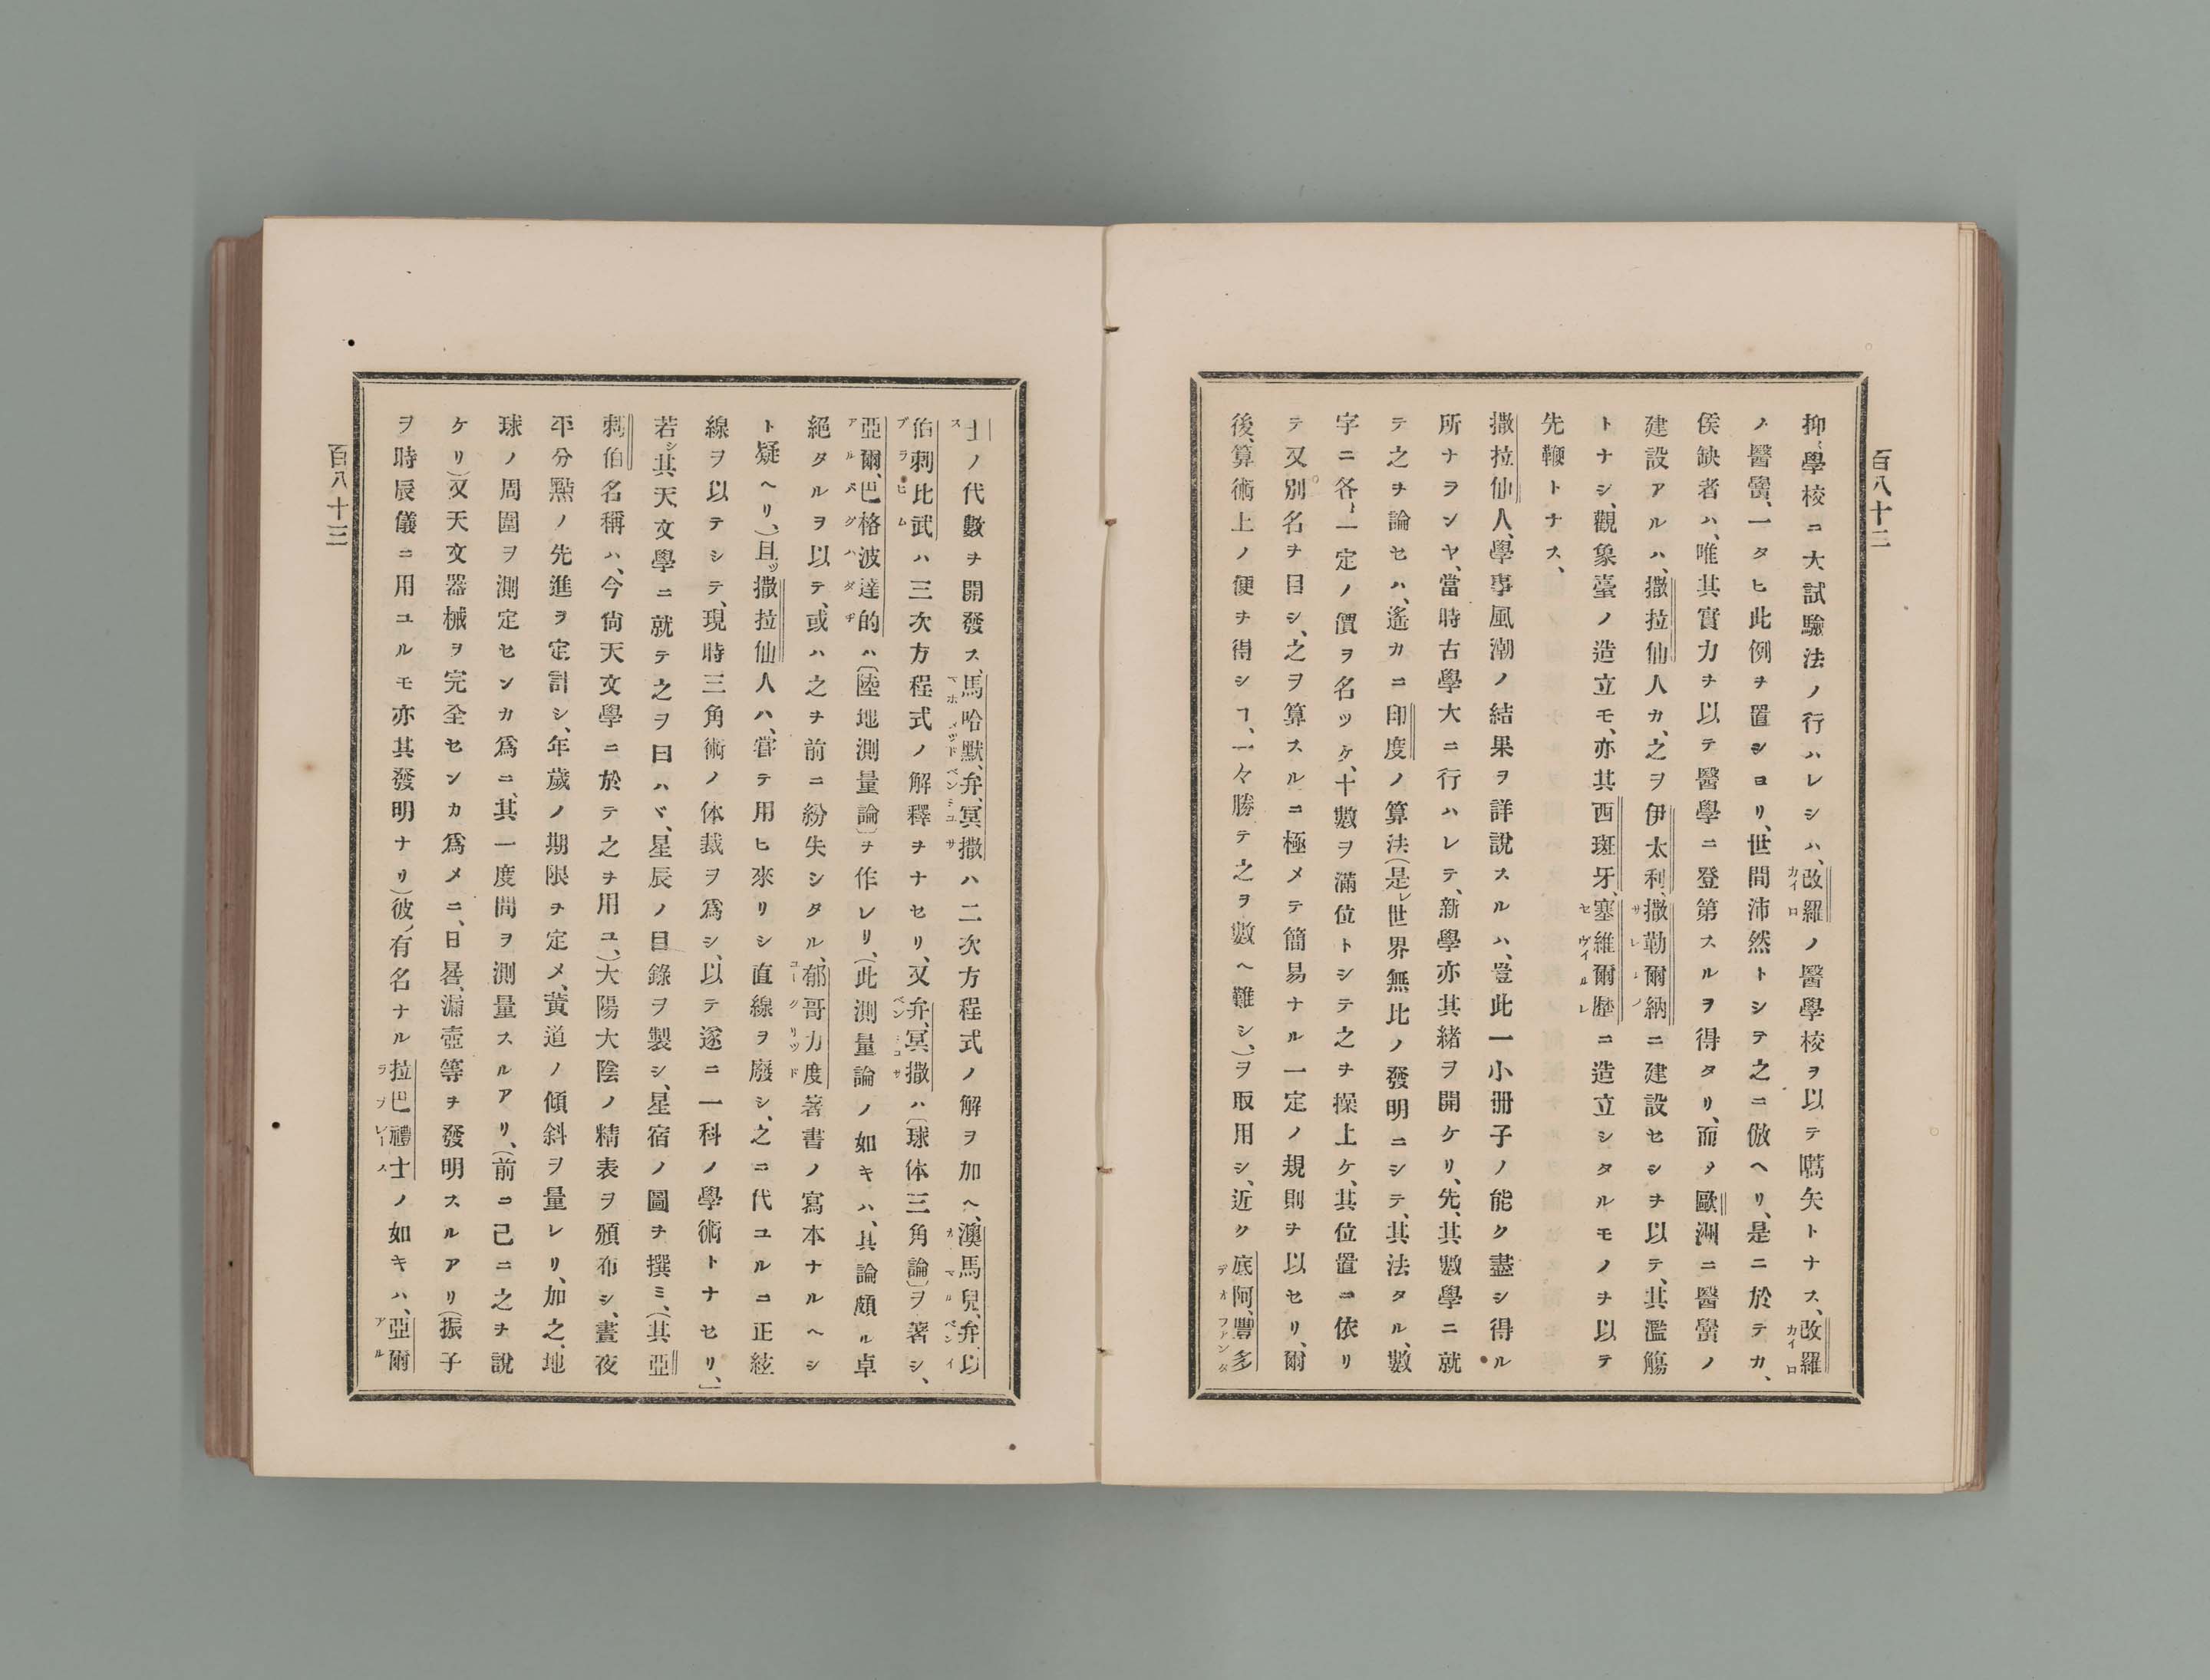 百八十二
抑〻學校ニ大試驗法ノ行ハレシハ、改羅ノ醫學校ヲ以テ嚆矢トナス、改羅
ノ醫黌、一タヒ此例ヲ置シヨリ、世間沛然トシテ之ニ倣ヘリ、是ニ於テカ、
侯缺者ハ、唯其實力ヲ以テ醫學ニ登第スルヲ得タリ、而〆歐洲ニ醫黌ノ
建設アルハ、撒拉仙人カ、之ヲ伊太利、撒勒爾納ニ建設セシヲ以テ、其濫觴
トナシ、觀象臺ノ造立モ、亦其西斑牙、塞維爾歷ニ造立シタルモノヲ以テ
先鞭トナス、
撒拉仙人、學事風潮ノ結果ヲ詳說スルハ、豈此一小冊子ノ能ク盡シ得ル
所ナランヤ、當時古學大ニ行ハレテ、新學亦其緒ヲ開ケリ、先、其數學ニ就
テ之ヲ論セハ、遙カニ印度ノ算法(是レ世界無比ノ發明ニシテ、其法タル、數
字ニ各〻一定ノ價ヲ名ツケ、十數ヲ滿位トシテ之ヲ操上ケ、其位置ニ依リ
テ又別名ヲ目シ、之ヲ算スルニ極メテ簡易ナル一定ノ規則ヲ以セリ、爾
後、算術上ノ便ヲ得シヿ、一々勝テ之ヲ數ヘ難シ、)ヲ取用シ、近ク底阿、豐多
士ノ代數ヲ開發ス、馬哈默、弁、冥撒ハ二次方程式ノ解ヲ加ヘ、澳馬兒、弁、以
伯刺比武ハ三次方程式ノ解釋ヲナセリ、又弁、冥撒ハ(球体三角論)ヲ著シ、
亞爾、巴格波達的ハ(陸地測量論)ヲ作レリ、(此測量論ノ如キハ、其論頗ル卓
絕タルヲ以テ、或ハ之ヲ前ニ紛失シタル、郁哥力度著書ノ寫本ナルヘシ
ト疑ヘリ、)且ツ撒拉仙人ハ、甞テ用ヒ來リシ直線ヲ廢シ、之ニ代ユルニ正絃
線ヲ以テシテ、現時三角術ノ体裁ヲ爲シ、以テ遂ニ一科ノ學術トナセリ、
若シ其天文學ニ就テ之ヲ曰ハヾ、星辰ノ目錄ヲ製シ、星宿ノ圖ヲ撰ミ、(其亞
刺伯名稱ハ、今尙天文學ニ於テ之ヲ用ユ、)大陽大陰ノ精表ヲ頒布シ、晝夜
平分點ノ先進ヲ定計シ、年歲ノ期限ヲ定メ、黃道ノ傾斜ヲ量レリ、加之、地
球ノ周圍ヲ測定センカ爲ニ、其一度間ヲ測量スルアリ、(前ニ已ニ之ヲ說
ケリ)又天文器械ヲ完全センカ爲メニ、日晷、漏壺等ヲ發明スルアリ(振子
ヲ時辰儀ニ用ユルモ亦其發明ナリ)彼、有名ナル拉巴禮士ノ如キハ、亞爾
百八十三